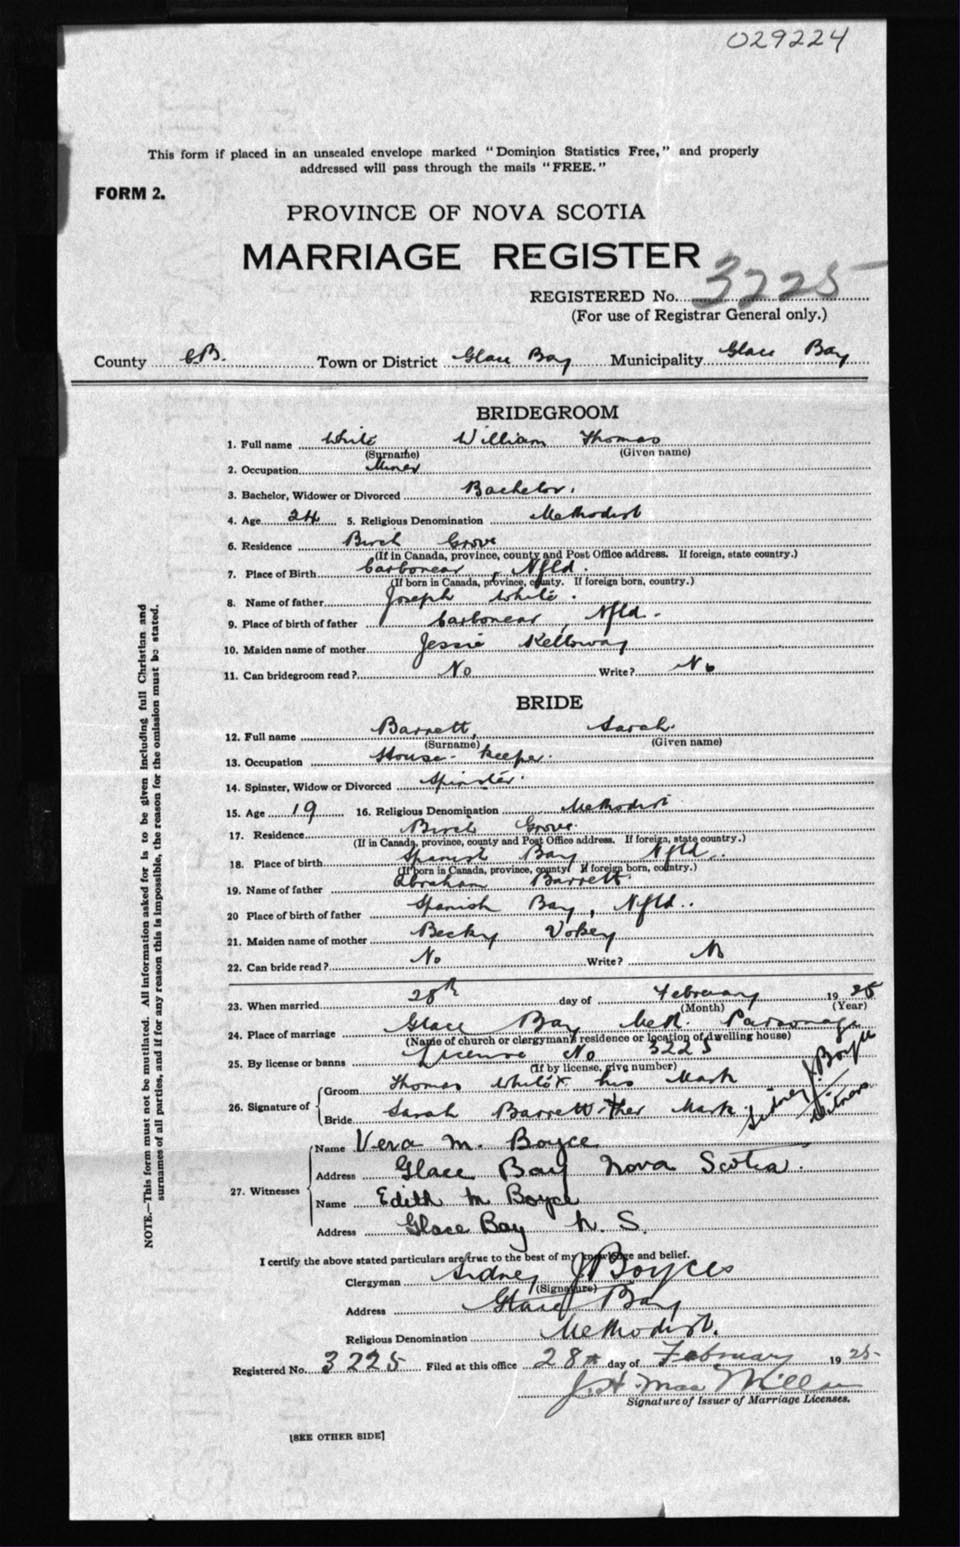 029224
This form if placed in an unsealed envelope marked "Dominion Statistics Free," and properly
addressed will pass through the mails "FREE."
FORM 2.
PROVINCE OF NOVA SCOTIA
MARRIAGE REGISTER
REGISTERED No. 3225
(For use of Registrar General only.)
County C.B. Town or District Glace Bay Municipality Glace Bay
BRIDEGROOM
1. Full name White William Thomas
(Surname) (Given name)
2. Occupation Miner
3. Bachelor, Widower or Divorced Bachelor.
4. Age 24 5. Religious Denomination Methodist
6. Residence Birch Grove
(If in Canada, province, county and Post Office address. If foreign, state country.)
7. Place of Birth Carbonear, Nfld.
(If born in Canada, province, county. If foreign born, country.)
8. Name of father Joseph White.
9. Place of birth of father Carbonear, Nfld.
10. Maiden name of mother Jessie Kelloway
11. Can bridegroom read? No Write? No
BRIDE
12. Full name Barrett, Sarah.
(Surname) (Given name)
13. Occupation House-keeper.
14. Spinster, Widow or Divorced Spinster.
15. Age 19 16. Religious Denomination Methodist
17. Residence Birch Grove.
(If in Canada, province, county and Post Office address. If foreign, state country.)
18. Place of birth Spanish Bay Nfld..
(If born in Canada, province, county. If foreign born, country.)
19. Name of father Abraham Barrett.
20 Place of birth of father Spanish Bay, Nfld..
21. Maiden name of mother Becky Vokey
22. Can bride read? No Write? No
23. When married 28th day of February 1925
(Month) (Year)
24. Place of marriage Glace Bay Meth. Parsonage
(Name of church or clergyman's residence or location of dwelling house)
25. By license or banns License No 3225
(If by license, give number)
26. Signature of Groom Thomas White x his Mark
Bride Sarah Barrett + her Mark. Sidney J. Boyce Witness
27. Witnesses Name Vera M. Boyce
Address Glace Bay Nova Scotia.
Name Edith M Boyce
Address Glace Bay N. S.
I certify the above stated particulars are true to the best of my knowledge and belief.
Clergyman Sidney J Boyce
(Signature)
Address Glace Bay
Religious Denomination Methodist.
Registered No. 3225 Filed at this office 28th day of February 1925
J. H. MacMillan
Signature of Issuer of Marriage Licenses.
[SEE OTHER SIDE]
NOTE.—This form must not be mutilated. All information asked for is to be given including full Christian and
surnames of all parties, and if for any reason this is impossible, the reason for the omission must be stated.